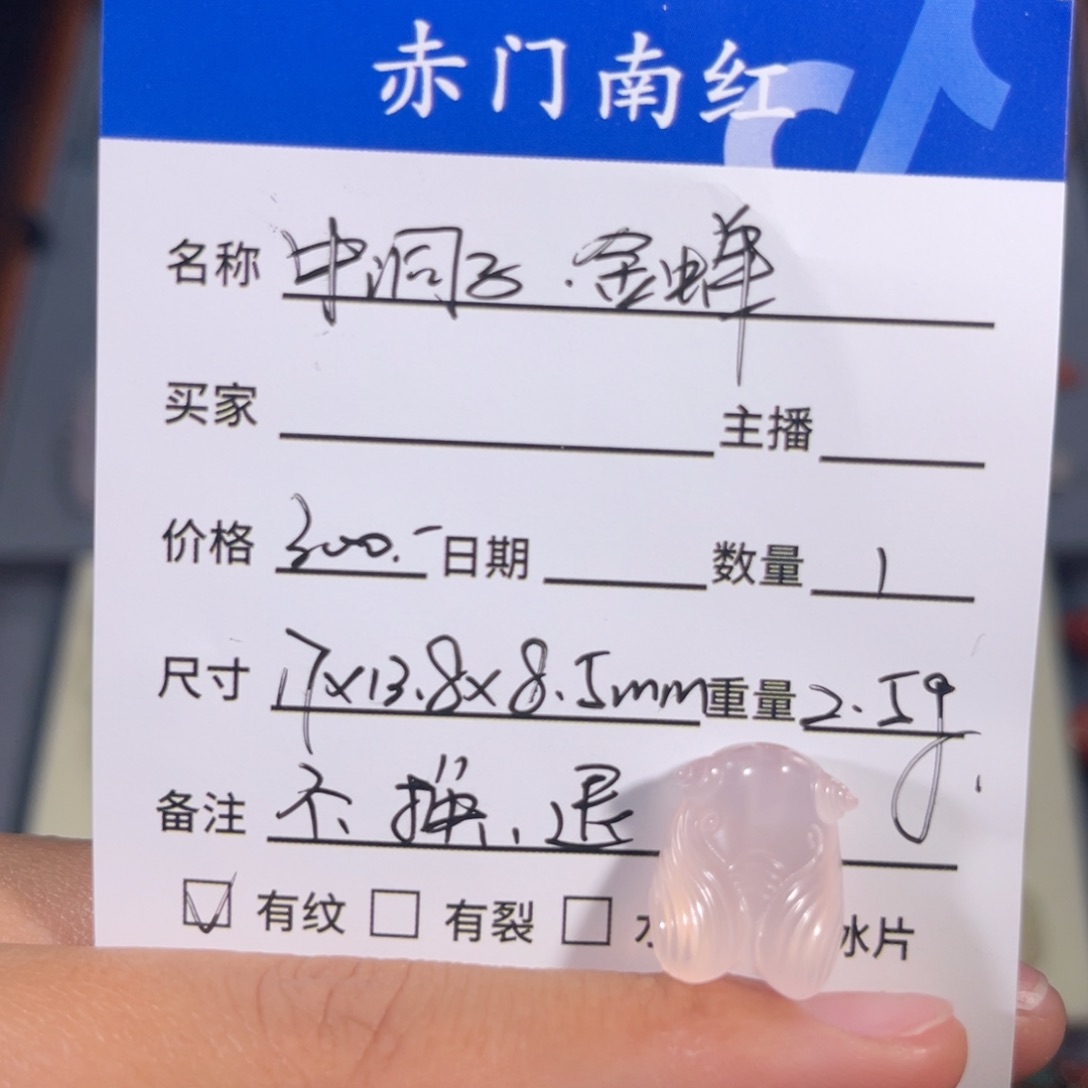 赤门南红
名称 中洞子.金蝉
买家 主播
价格 300.- 日期 数量 1
尺寸 17x13.8x8.5mm 重量 2.5g.
备注 不换、退
有纹 有裂 冰片